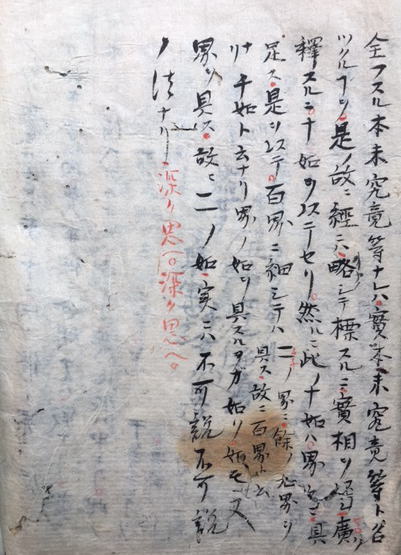 全フスル本末究竟等ナレハ實本末究竟等ト名
ツクルナリ是ノ故ニ經ニハ略シテ標スルニ實相ヲ以シ廣
釋スルニ十如ヲ以テセリ然ルニ此ノ十如ハ界々ニ具
足ス是ヲ以テ百界ニ細シテハ一ノ界ニ餘ノ九界ヲ
具ス故ニ百界ト云
リナ千如ト云ナリ界ノ如ヲ具スルガ如リ如モ又
界ヲ具ス故ニ一一ノ如実ニハ不可説不可説
ノ法ナリ深ク思ヘ深ク思ヘ